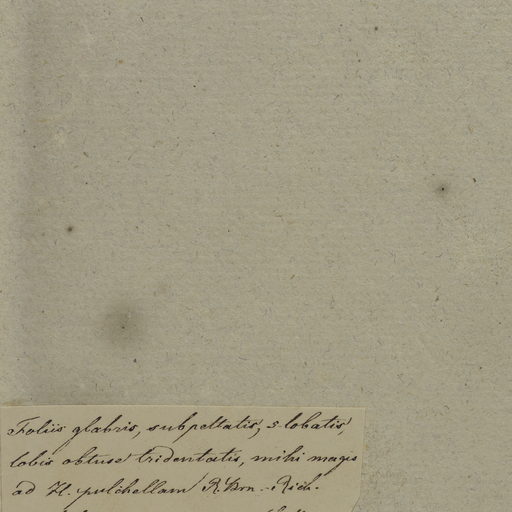 Foliis glabris, subpeltatis, 5 lobatis,
lobis obtuse tridentatis, mihi magis
ad H. pulchellam R. Brn. - Rich.